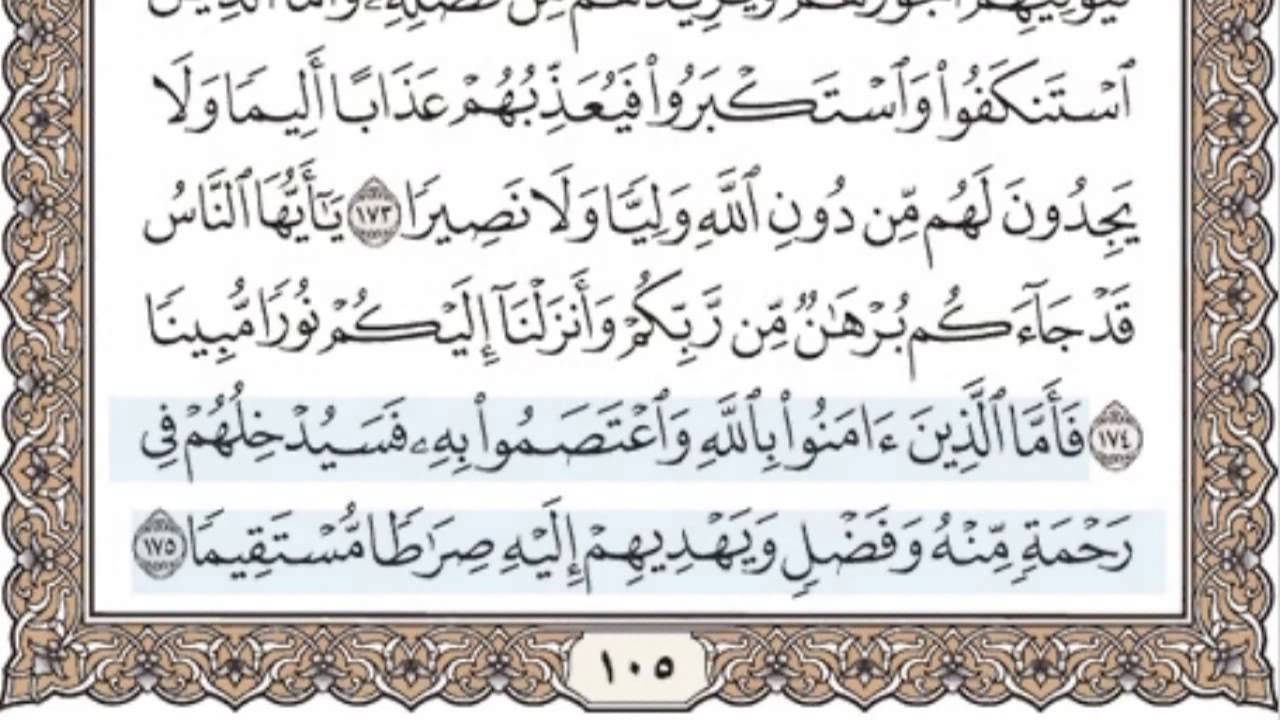 فَيُوَفِّيهِمْ أُجُورَهُمْ وَيَزِيدُهُم مِّن فَضْلِهِۦ وَأَمَّا ٱلَّذِينَ
ٱسْتَنكَفُوا۟ وَٱسْتَكْبَرُوا۟ فَيُعَذِّبُهُمْ عَذَابًا أَلِيمًا وَلَا
يَجِدُونَ لَهُم مِّن دُونِ ٱللَّهِ وَلِيًّا وَلَا نَصِيرًا ١٧٣ يَـٰٓأَيُّهَا ٱلنَّاسُ
قَدْ جَآءَكُم بُرْهَـٰنٌ مِّن رَّبِّكُمْ وَأَنزَلْنَآ إِلَيْكُمْ نُورًا مُّبِينًا
١٧٤ فَأَمَّا ٱلَّذِينَ ءَامَنُوا۟ بِٱللَّهِ وَٱعْتَصَمُوا۟ بِهِۦ فَسَيُدْخِلُهُمْ فِى
رَحْمَةٍ مِّنْهُ وَفَضْلٍ وَيَهْدِيهِمْ إِلَيْهِ صِرَٰطًا مُّسْتَقِيمًا ١٧٥
١٠٥